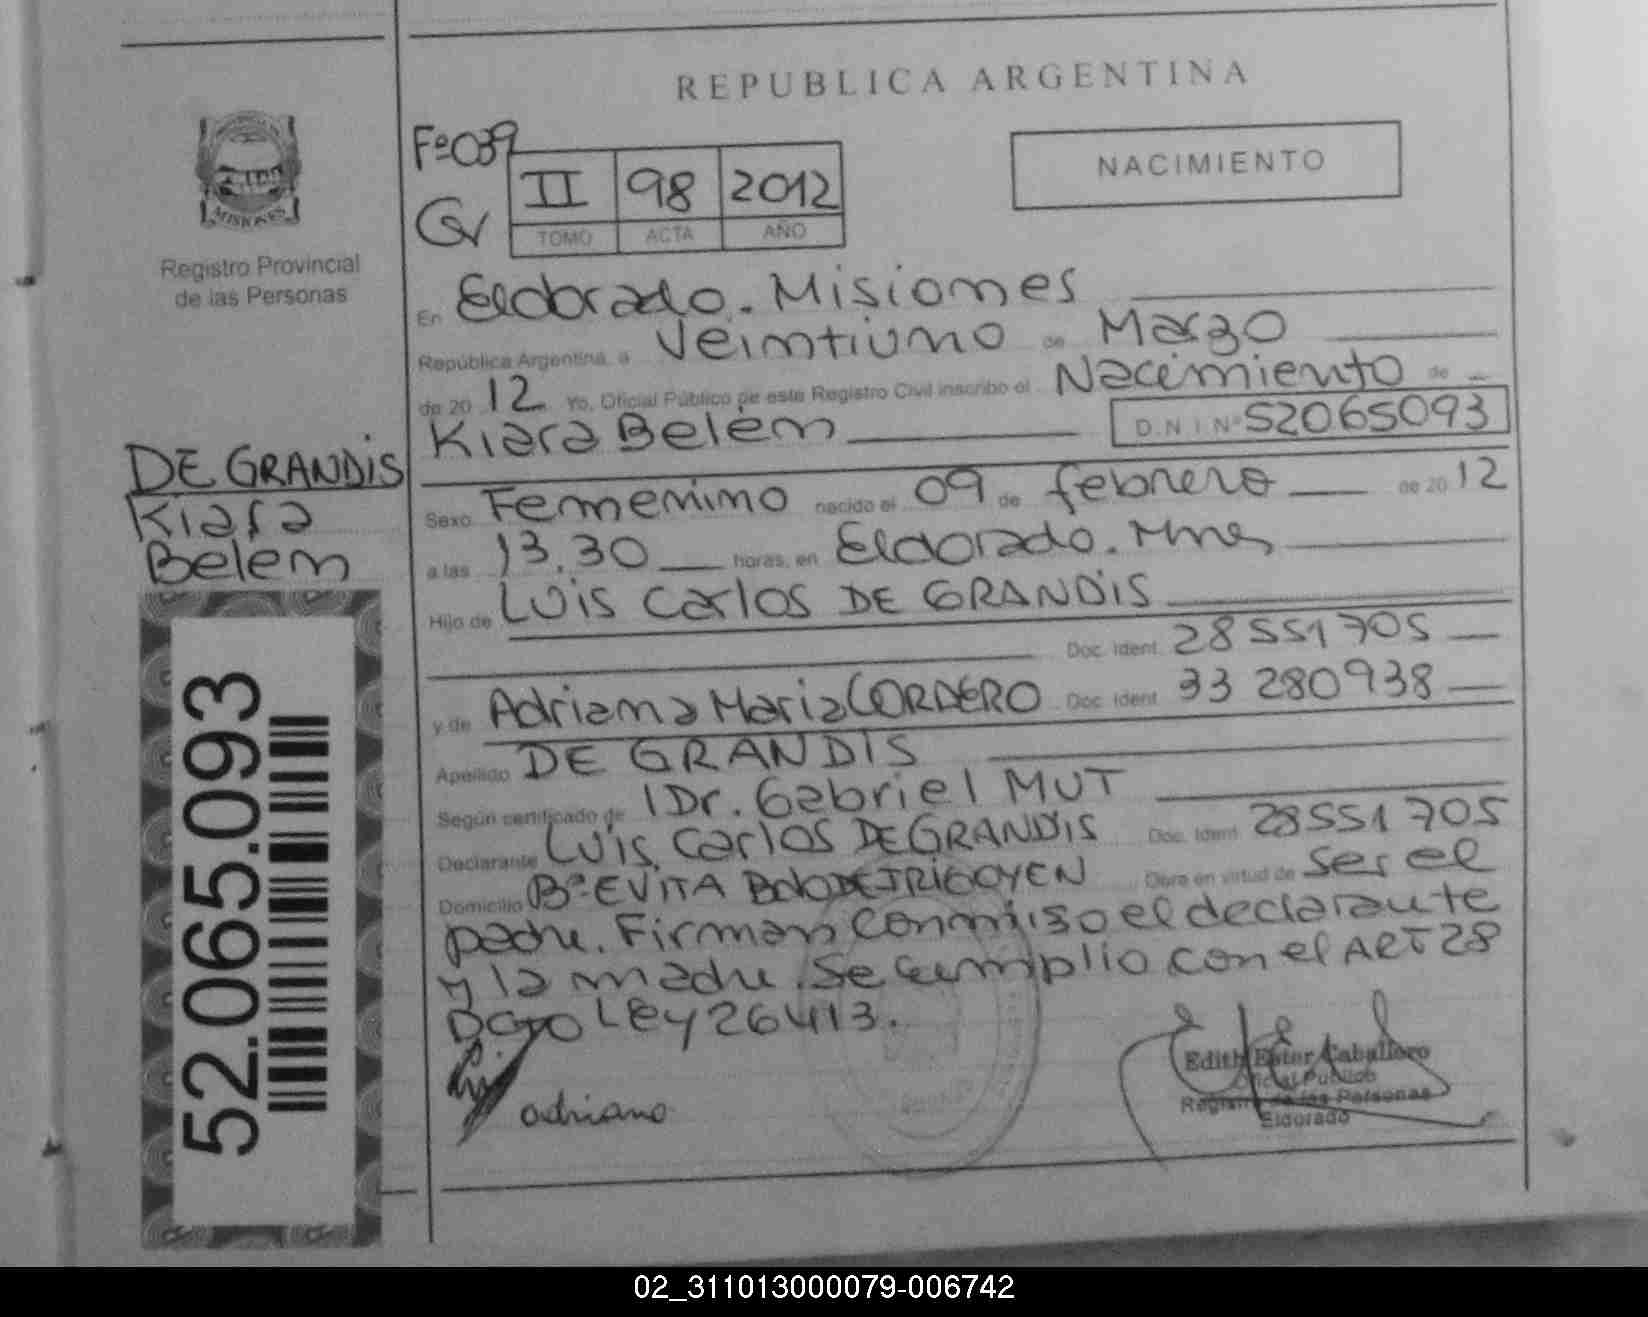 REPUBLICA ARGENTINA
NACIMIENTO
MISIONES
Registro Provincial
de las Personas
Fº039
II 98 2012
TOMO ACTA AÑO
En Eldorado. Misiones
República Argentina, a Veintiuno de Marzo
de 20 12 Yo, Oficial Público de este Registro Civil inscribo el Nacimiento de
Kiara Belén D.N.I. Nº 52065093
DE GRANDIS
Kiara
Belem
Sexo Femenino nacido el 09 de febrero de 20 12
a las 13.30 horas, en Eldorado. Mnes
Hijo de Luis Carlos DE GRANDIS
Doc. Ident. 28551705
y de Adriana Maria CORDERO Doc. Ident. 33 280938
Apellido DE GRANDIS
Según certificado de Dr. Gabriel MUT
Declarante Luis Carlos DE GRANDIS Doc. Ident. 28551705
Domicilio Bº EVITA Bdo DE IRIGOYEN Obra en virtud de ser el
padre. Firman conmigo el declarante
y la madre. Se cumplio con el ART 28
Dcto Ley 26413.
adriana
Edith Ester Caballero
Oficial Publico
Registro de las Personas
Eldorado
52.065.093
02_311013000079-006742